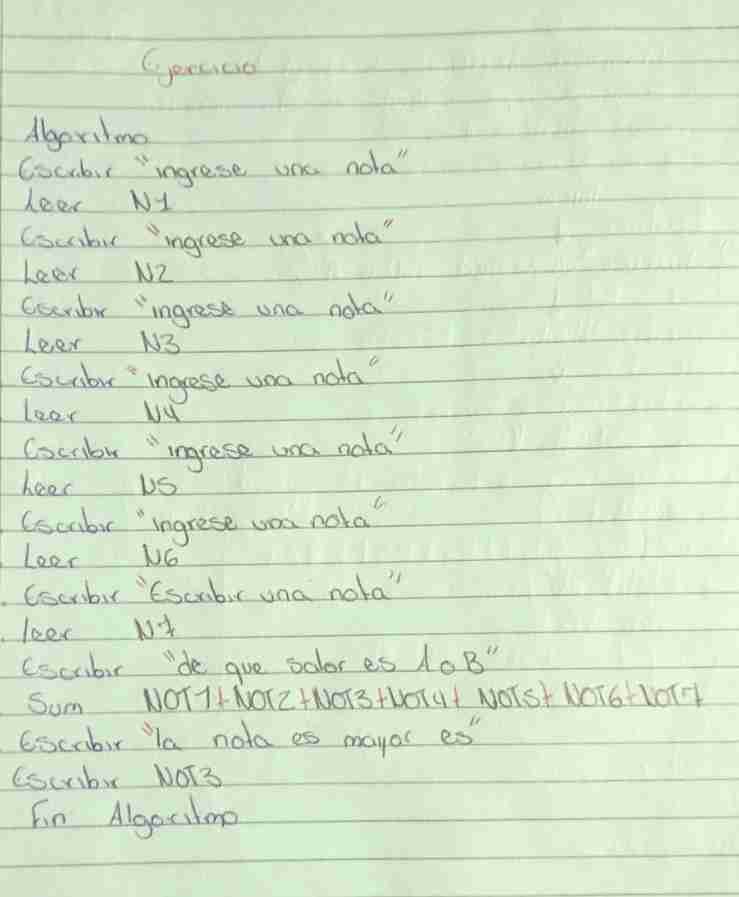 Ejercicio
Algoritmo
Escribir "ingrese una nota"
Leer N1
Escribir "ingrese una nota"
Leer N2
Escribir "ingrese una nota"
Leer N3
Escribir "ingrese una nota"
Leer N4
Escribir "ingrese una nota"
Leer N5
Escribir "ingrese una nota"
Leer N6
Escribir "Escribir una nota"
leer N7
Escribir "de que salor es A o B"
Sum NOT1+NOT2+NOT3+NOT4+ NOT5+ NOT6+NOT7
Escribir "la nota es mayor es"
Escribir NOT3
Fin Algoritmo